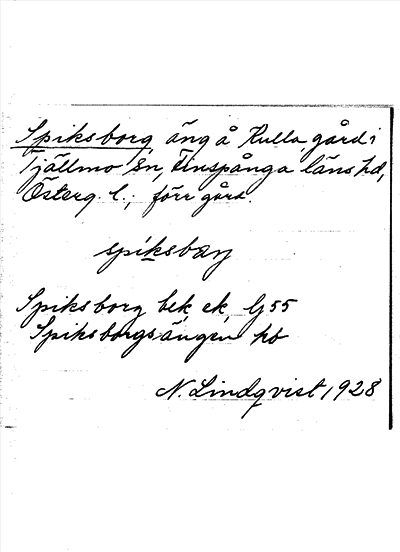 Spiksborg, äng å Hulla gård i
Tjällmo sn, Finspånga läns hd,
Österg. l.; förr gård.
spiksbɔrj
Spiksborg bek ek, Gj 55
Spiksborgsängen hb
N. Lindqvist 1928